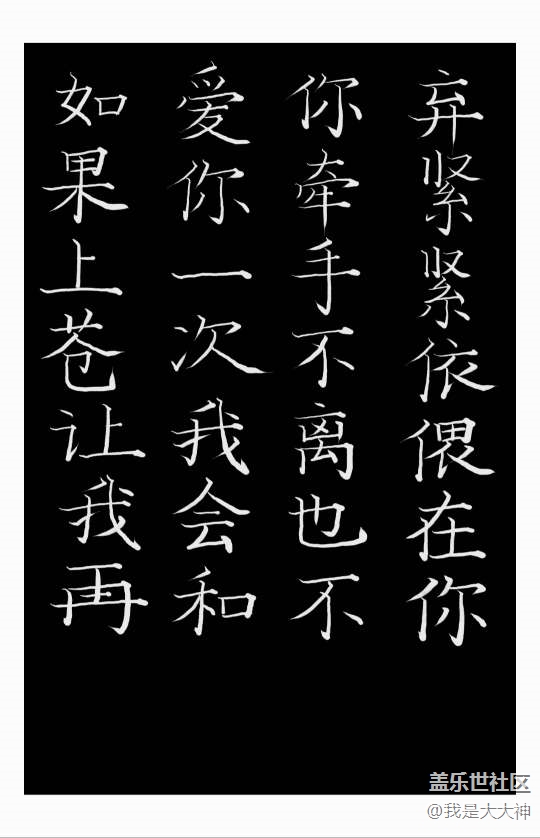 如果上苍让我再
爱你一次我会和
你牵手不离也不
弃紧紧依偎在你
盖乐世社区
@我是大大神